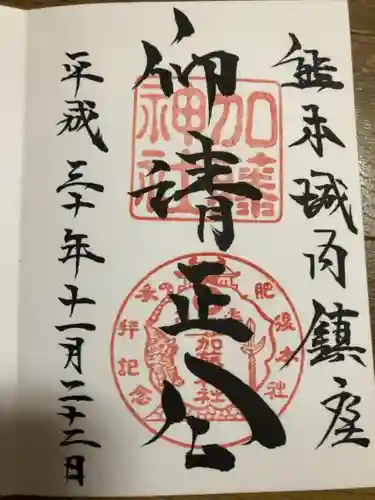 熊本城内鎮座
御請正公
平成三十年十一月二十二日
加藤神社
肥後本社
参拝記念
加藤神社